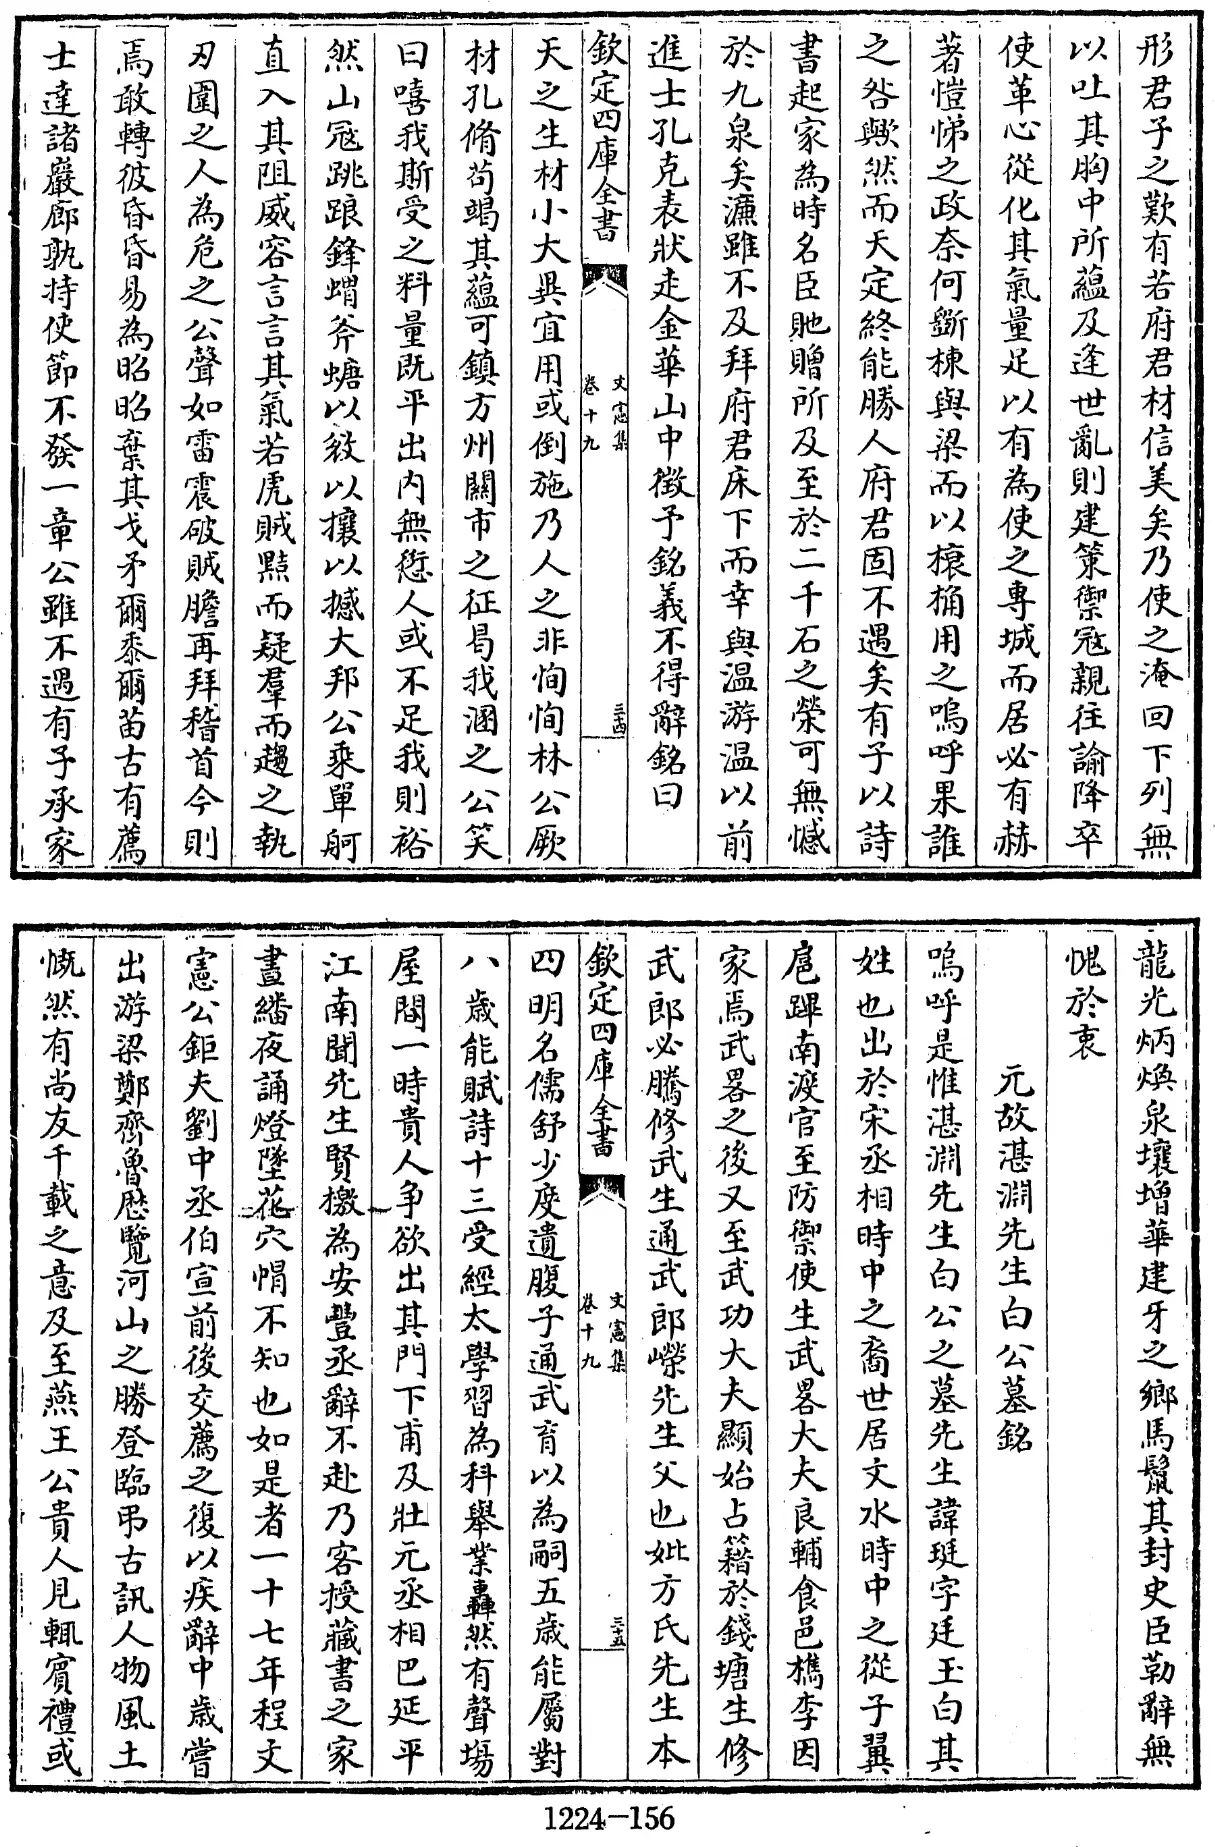 形君子之歎有若府君材信美矣乃使之淹回下列無
以吐其胸中所蘊及逢世亂則建策禦冦親往諭降卒
使革心從化其氣量足以有為使之專城而居必有赫
著愷悌之政奈何斵棟與梁而以榱桷用之嗚呼果誰
之咎歟然而天定終能勝人府君固不遇矣有子以詩
書起家為時名臣貤贈所及至於二千石之榮可無憾
於九泉矣濂雖不及拜府君床下而幸與温游温以前
進士孔克表狀走金華山中徵予銘義不得辭銘曰
欽定四庫全書
文憲集
卷十九
三十四
天之生材小大異宜用或倒施乃人之非恂恂林公厥
材孔脩茍竭其蘊可鎮方州關市之征曷我溷之公笑
曰嘻我斯受之料量既平出内無愆人或不足我則裕
然山冦跳踉鋒蝟斧螗以敓以攘以撼大邦公乘單舸
直入其阻威容言言其氣若虎賊黠而疑羣而趨之執
刃圍之人為危之公聲如雷震破賊膽再拜稽首今則
焉敢轉彼昏昏易為昭昭棄其戈矛爾黍爾苗古有薦
士達諸巖廊孰持使節不發一章公雖不遇有子承家
龍光炳煥泉壤增華建牙之鄉馬鬛其封史臣勒辭無
愧於衷
元故湛淵先生白公墓銘
嗚呼是惟湛淵先生白公之墓先生諱珽字廷玉白其
姓也出於宋丞相時中之裔世居文水時中之從子翼
扈蹕南渡官至防禦使生武畧大夫良輔食邑檇李因
家焉武畧之後又至武功大夫顯始占籍於錢塘生修
武郎必騰修武生通武郎嶸先生父也妣方氏先生本
欽定四庫全書
文憲集
卷十九
三十五
四明名儒舒少度遺腹子通武育以為嗣五歲能屬對
八歲能賦詩十三受經太學習為科舉業轟然有聲場
屋間一時貴人争欲出其門下甫及壯元丞相巴延平
江南聞先生賢檄為安豐丞辭不赴乃客授藏書之家
晝繙夜誦燈墜花穴帽不知也如是者一十七年程文
憲公鉅夫劉中丞伯宣前後交薦之復以疾辭中歲嘗
出游梁鄭齊魯厯覽河山之勝登臨弔古訊人物風土
慨然有尚友千載之意及至燕王公貴人見輒賓禮或
1224-156